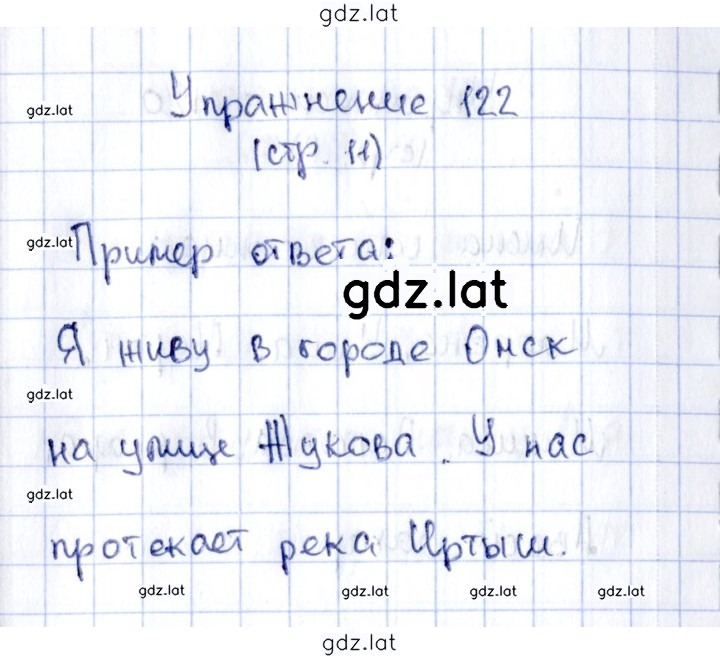 gdz.lat
Упражнение 122
gdz.lat
(стр. 11)
gdz.lat
Пример ответа:
gdz.lat
Я живу в городе Омск
gdz.lat
на улице Жукова. У нас
gdz.lat
протекает река Иртыш.
gdz.lat gdz.lat gdz.lat gdz.lat
gdz.lat